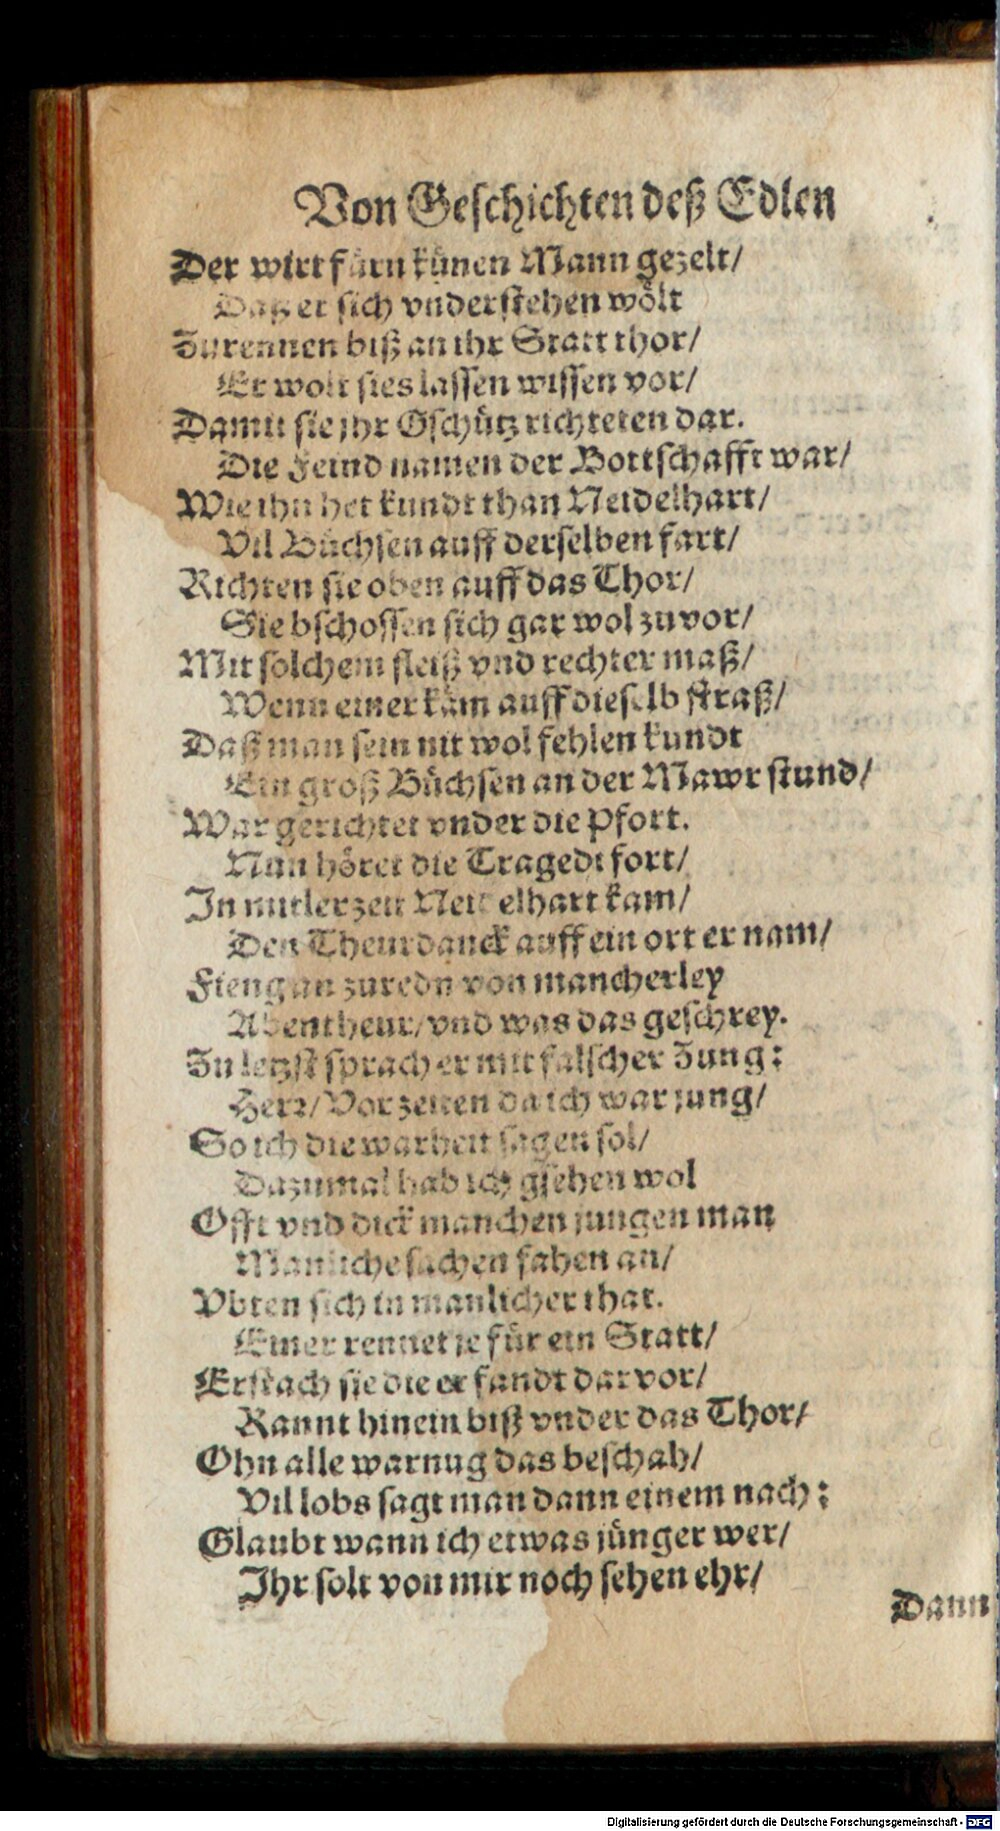 Von Geschichten deß Edlen
Der wirt fürn künen Mann gezelt/
Daß er sich vnderstehen wölt
Zu rennen biß an ihr Statt thor/
Er wolt sies lassen wissen vor/
Damit sie jhr Gschütz richteten dar.
Die Feind namen der Bottschafft war/
Wie ihn het kundt than Neidelhart/
Vil Büchsen auff derselben fart/
Richten sie oben auff das Thor/
Sie bschossen sich gar wol zuvor/
Mit solchem fleiß vnd rechter maß/
Wenn einer käm auff dieselb straß/
Daß man sein nit wol fehlen kundt
Ein groß Büchsen an der Mawr stund/
War gerichtet vnder die Pfort.
Nun höret die Tragedi fort/
In mitlerzeit Neidelhart kam/
Den Theurdanck auff ein ort er nam/
Fieng an zuredn von mancherley
Abentheur/ vnd was das geschrey.
Zu letzst sprach er mit falscher Zung:
Herr/ Vor zeiten da ich war jung/
So ich die warheit sagen sol/
Dazumal hab ich gsehen wol
Offt vnd dick manchen jungen man
Manliche sachen fahen an/
Vbten sich in manlicher that.
Einer rennet je für ein Statt/
Erstach sie die er fandt darvor/
Rannt hinein biß vnder das Thor/
Ohn alle warnug das beschah/
Vil lobs sagt man dann einem nach:
Glaubt wann ich etwas jünger wer/
Ihr solt von mir noch sehen ehr/
Dann
Digitalisierung gefördert durch die Deutsche Forschungsgemeinschaft - DFG